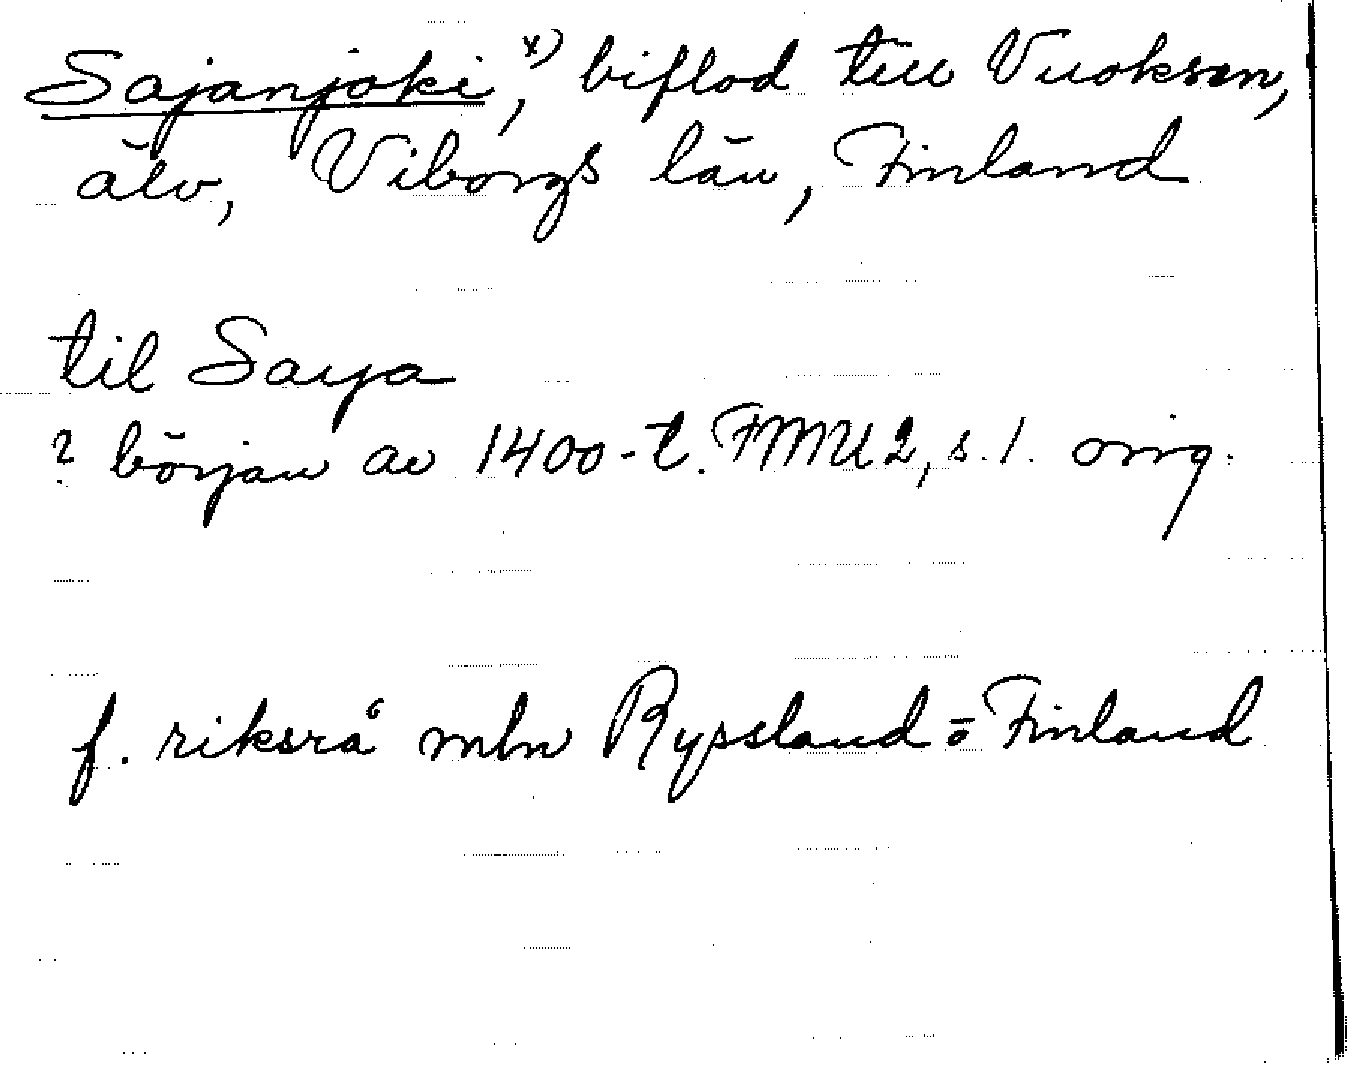 Sajanjoki, x) biflod till Vuoksen,
älv, Viborgs län, Finland
til Saya
? början av 1400-t. FMU 2, s. 1. orig.
f. riksrå mln Ryssland o Finland